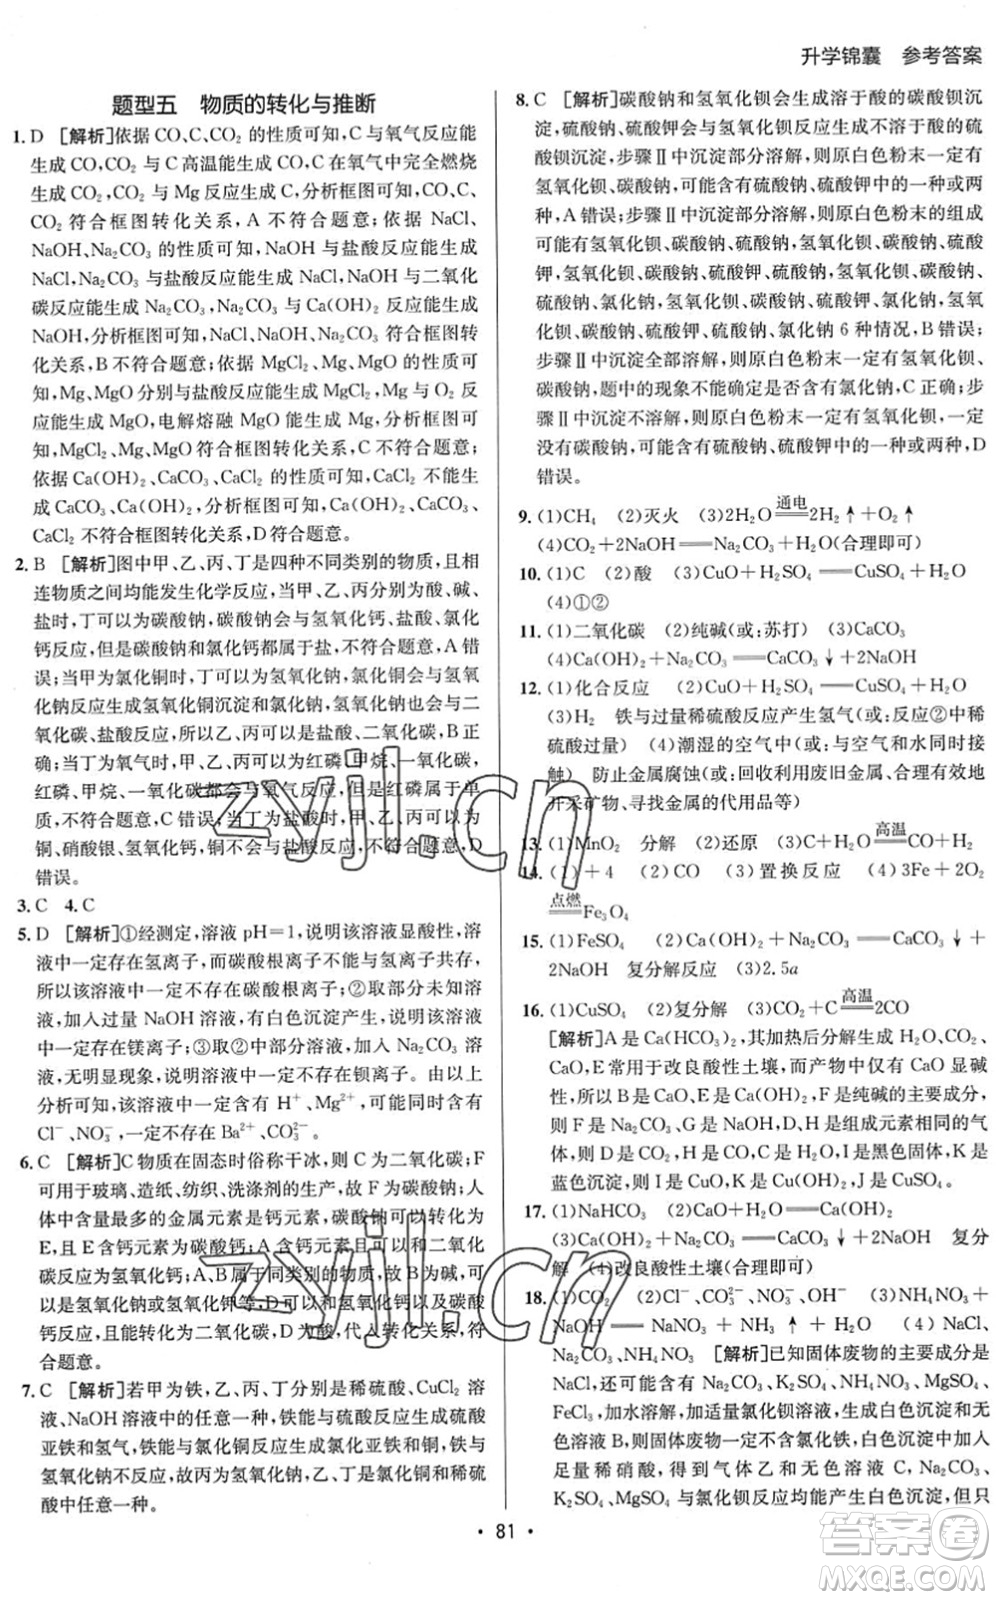 升学锦囊 参考答案
题型五 物质的转化与推断
1. D [解析]依据 CO、C、CO₂ 的性质可知，C 与氧气反应能
生成 CO，CO₂ 与 C 高温能生成 CO，C 在氧气中完全燃烧
生成 CO₂，CO₂ 与 Mg 反应生成 C，分析框图可知，CO、C、
CO₂ 符合框图转化关系，A 不符合题意；依据 NaCl、
NaOH、Na₂CO₃ 的性质可知，NaOH 与盐酸反应能生成
NaCl，Na₂CO₃ 与盐酸反应能生成 NaCl，NaOH 与二氧化
碳反应能生成 Na₂CO₃，Na₂CO₃ 与 Ca(OH)₂ 反应能生成
NaOH，分析框图可知，NaCl、NaOH、Na₂CO₃ 符合框图转
化关系，B 不符合题意；依据 MgCl₂、Mg、MgO 的性质可
知，Mg、MgO 分别与盐酸反应能生成 MgCl₂，Mg 与 O₂ 反
应能生成 MgO，电解熔融 MgO 能生成 Mg，分析框图可知，
MgCl₂、Mg、MgO 符合框图转化关系，C 不符合题意；
依据 Ca(OH)₂、CaCO₃、CaCl₂ 的性质可知，CaCl₂ 不能生
成 CaCO₃、Ca(OH)₂，分析框图可知，Ca(OH)₂、CaCO₃、
CaCl₂ 不符合框图转化关系，D 符合题意。
2. B [解析]图中甲、乙、丙、丁是四种不同类别的物质，且相
连物质之间均能发生化学反应，当甲、乙、丙分别是酸、碱、
盐时，丁可以为碳酸钠，碳酸钠会与氢氧化钙、盐酸、氯化
钙反应，但是碳酸钠和氯化钙都属于盐，不符合题意，A 错
误；当甲为氯化铜时，乙、丙、丁可以为氢氧化钠，氯化铜会与氢氧
化钠反应生成氢氧化铜沉淀和氯化钠，氢氧化钠也会与二
氧化碳、盐酸反应，所以乙、丙可以为盐酸、二氧化碳，B 正
确；当丁为氧气时，甲、乙、丙可以为红磷、甲烷、一氧化碳，
红磷、甲烷、一氧化碳都会与氧气反应，但是红磷与甲烷不
会反应，C 错误；当丁为盐酸时，甲、乙、丙可以为
铜、硝酸银、氢氧化钙，铜不会与盐酸、氢氧化钙反应，D
错误。
3. C 4. C
5. D [解析]①经测定，溶液 pH=1，说明该溶液显酸性，溶
液中一定存在氢离子，而碳酸根离子不能与氢离子共存，
所以该溶液中一定不存在碳酸根离子；②取部分未知溶
液，加入过量 NaOH 溶液，有白色沉淀产生，说明该溶液中
一定存在镁离子；③取②中部分溶液，加入 Na₂CO₃ 溶
液，无明显现象，说明该溶液中一定不存在钡离子。由以上
分析可知，该溶液中一定含有 H⁺、Mg²⁺，可能含有
Cl⁻、NO₃⁻，一定不存在 Ba²⁺、CO₃²⁻。
6. C [解析]C 物质在固态时俗称干冰，则 C 为二氧化碳；F
可用于玻璃、造纸、纺织、洗涤剂的生产，故 F 为碳酸钠；人
体中含量最多的金属元素是钙元素，碳酸钠可以转化为
E，且 E 含钙元素，故 E 为碳酸钙；A 含钙元素且可以和二氧化
碳反应为氢氧化钙；A、B 属于同类别的物质，故 B 可以
是氢氧化钠或氢氧化钾等；D 可以和氢氧化钙、碳酸钙反
应，且能转化为二氧化碳，D 为盐酸，代入转化关系，符
合题意。
7. C [解析]若甲为铁，乙、丙、丁分别是稀硫酸、CuCl₂ 溶
液、NaOH 溶液中的任意一种，铁能与硫酸反应生成硫酸
亚铁和氢气，铁能与氯化铜反应生成氯化亚铁和铜，铁与
氢氧化钠不反应，故丙为氢氧化钠，乙、丁是氯化铜和稀硫
酸中任意一种。
8. C [解析]碳酸钠和氢氧化钡会生成溶于酸的碳酸钡沉
淀，硫酸钠、硫酸钾会与氢氧化钡反应生成不溶于酸的硫
酸钡沉淀，步骤Ⅱ中沉淀部分溶解，则原白色粉末一定有
氢氧化钡、碳酸钠，可能含有硫酸钠、硫酸钾中的一种或两
种，A 错误；步骤Ⅱ中沉淀部分溶解，则原白色粉末的组成
可能有氢氧化钡、碳酸钠、硫酸钠，氢氧化钡、碳酸钠、硫酸
钾，氢氧化钡、碳酸钠、硫酸钾、硫酸钠，氢氧化钡、碳酸钠、
硫酸钠、氯化钠，氢氧化钡、碳酸钠、硫酸钾、氯化钠，氢氧
化钡、碳酸钠、硫酸钾、硫酸钠、氯化钠 6 种情况，B 错误；
步骤Ⅱ中沉淀全部溶解，则原白色粉末一定有氢氧化钡、
碳酸钠，题中的现象不能确定是否含有氯化钠，C 正确；步
骤Ⅱ中沉淀不溶解，则原白色粉末一定有氢氧化钡，一定
没有碳酸钠，可能含有硫酸钠、硫酸钾中的一种或两种，D
错误。
9. (1)CH₄ (2)灭火 (3)2H₂O 通电══ 2H₂↑+O₂↑
(4)CO₂+2NaOH══Na₂CO₃+H₂O(合理即可)
10. (1)C (2)酸 (3)CuO+H₂SO₄══CuSO₄+H₂O
(4)①②
11. (1)二氧化碳 (2)纯碱(或：苏打) (3)CaCO₃
(4)Ca(OH)₂+Na₂CO₃══CaCO₃↓+2NaOH
12. (1)化合反应 (2)CuO+H₂SO₄══CuSO₄+H₂O
(3)H₂ 铁与过量稀硫酸反应产生氢气(或：反应②中稀
硫酸过量) (4)潮湿的空气中(或：与空气和水同时接
触) 防止金属腐蚀(或：回收利用废旧金属、合理有效地
开采矿物、寻找金属的代用品等)
13. (1)MnO₂ 分解 (2)还原 (3)C+H₂O 高温══ CO+H₂
14. (1)+4 (2)CO (3)置换反应 (4)3Fe+2O₂
点燃══ Fe₃O₄
15. (1)FeSO₄ (2)Ca(OH)₂+Na₂CO₃══CaCO₃↓+
2NaOH 复分解反应 (3)2.5a
16. (1)CuSO₄ (2)复分解 (3)CO₂+C 高温══ 2CO
[解析]A 是 Ca(HCO₃)₂，其加热后分解生成 H₂O、CO₂、
CaCO₃，E 常用于改良酸性土壤，而产物中仅有 CaO 满足
条件，所以 B 是 CaO，E 是 Ca(OH)₂，F 是纯碱的主要成分，
则 F 是 Na₂CO₃，G 是 NaOH，D 是组成元素与 C 相同的气
体，则 D 是 CO，C 是 CO₂，H 是 Cu，I 是黑色固体，K 是
蓝色沉淀，则 I 是 CuO，K 是 Cu(OH)₂，J 是 CuSO₄。
17. (1)NaHCO₃ (2)CaO+H₂O══Ca(OH)₂
(3)Ca(OH)₂+Na₂CO₃══CaCO₃↓+2NaOH 复分
解 (4)改良酸性土壤(合理即可)
18. (1)CO₂ (2)Cl⁻、CO₃²⁻、NO₃⁻、OH⁻ (3)NH₄NO₃+
NaOH══NaNO₃+NH₃↑+H₂O (4)NaCl、
Na₂CO₃、NH₄NO₃ [解析]已知固体废物的主要成分是
NaCl、Na₂CO₃、K₂SO₄、NH₄NO₃、MgSO₄、
FeCl₃，加水溶解，加适量氯化钡溶液，生成白色沉淀和无
色溶液 B，故固体废物一定不含氯化铁，白色沉淀中加入
足量稀硝酸，得到气体乙和无色溶液 C，Na₂CO₃、
K₂SO₄、MgSO₄ 与氯化钡均能产生白色沉淀，但只
81
zyjl.cn
zyjl.cn
答案圈
MXQE.COM